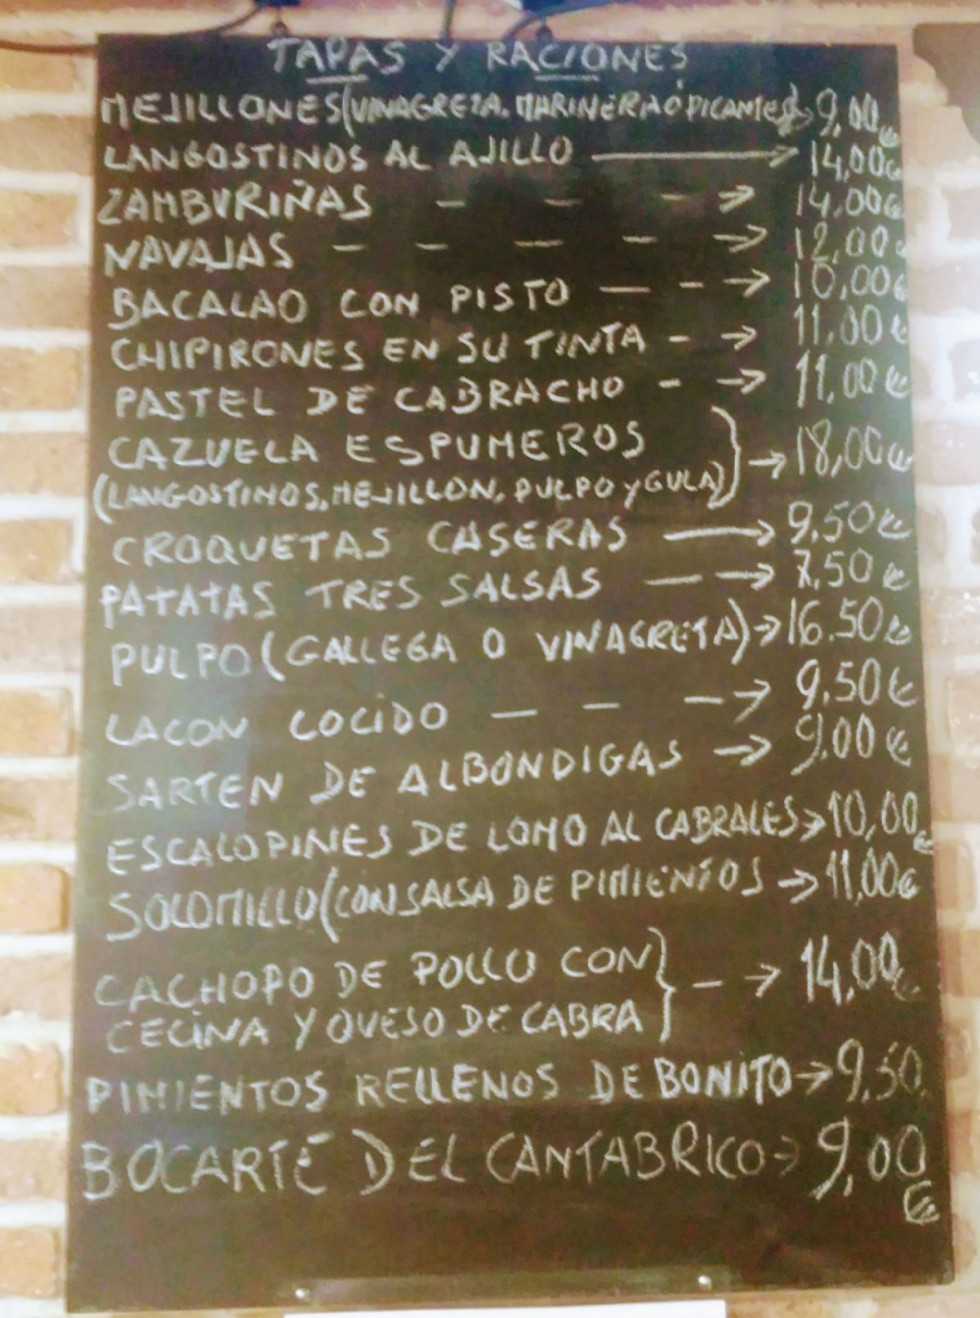 TAPAS Y RACIONES
MEJILLONES (VINAGRETA, MARINERA Ó PICANTES) → 9,00€
LANGOSTINOS AL AJILLO → 14,00€
ZAMBURIÑAS - - - → 14,00€
NAVAJAS - - - - → 12,00€
BACALAO CON PISTO - - → 10,00€
CHIPIRONES EN SU TINTA - → 11,00€
PASTEL DE CABRACHO - → 11,00€
CAZUELA ESPUMEROS
(LANGOSTINOS, MEJILLON, PULPO Y GULA) → 18,00€
CROQUETAS CASERAS → 9,50€
PATATAS TRES SALSAS - → 7,50€
PULPO (GALLEGA O VINAGRETA) → 16.50€
LACON COCIDO - - - → 9,50€
SARTEN DE ALBONDIGAS → 9,00€
ESCALOPINES DE LOMO AL CABRALES → 10,00€
SOLOMILLO (CON SALSA DE PIMIENTOS → 11,00€
CACHOPO DE POLLO CON
CECINA Y QUESO DE CABRA } - → 14,00€
PIMIENTOS RELLENOS DE BONITO → 9,50
BOCARTE DEL CANTABRICO → 9,00
€